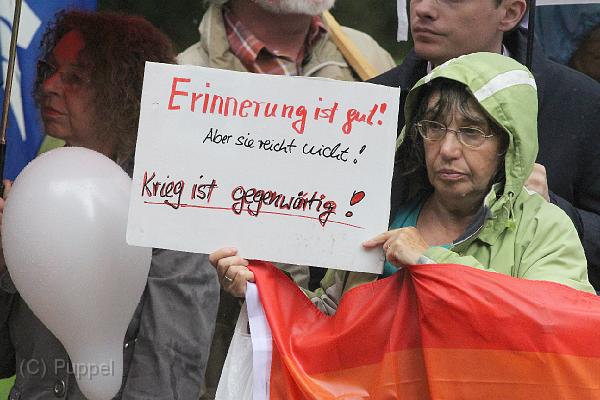 Erinnerung ist gut!
Aber sie reicht nicht!
Krieg ist gegenwärtig!
(C) Puppel